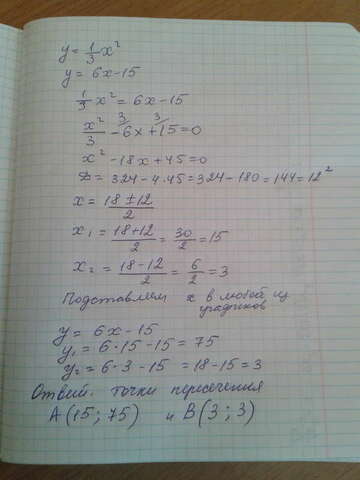 y = 1/3 x²
y = 6x - 15
1/3 x² = 6x - 15
x²/3 - 6x + 15 = 0
3 3
x² - 18x + 45 = 0
D = 324 - 4·45 = 324 - 180 = 144 = 12²
x = (18 ± 12)/2
x₁ = (18 + 12)/2 = 30/2 = 15
x₂ = (18 - 12)/2 = 6/2 = 3
Подставляем x в любой из
графиков
y = 6x - 15
y₁ = 6·15 - 15 = 75
y₂ = 6·3 - 15 = 18 - 15 = 3
Ответ: точки пересечения
A(15; 75) и B(3; 3)